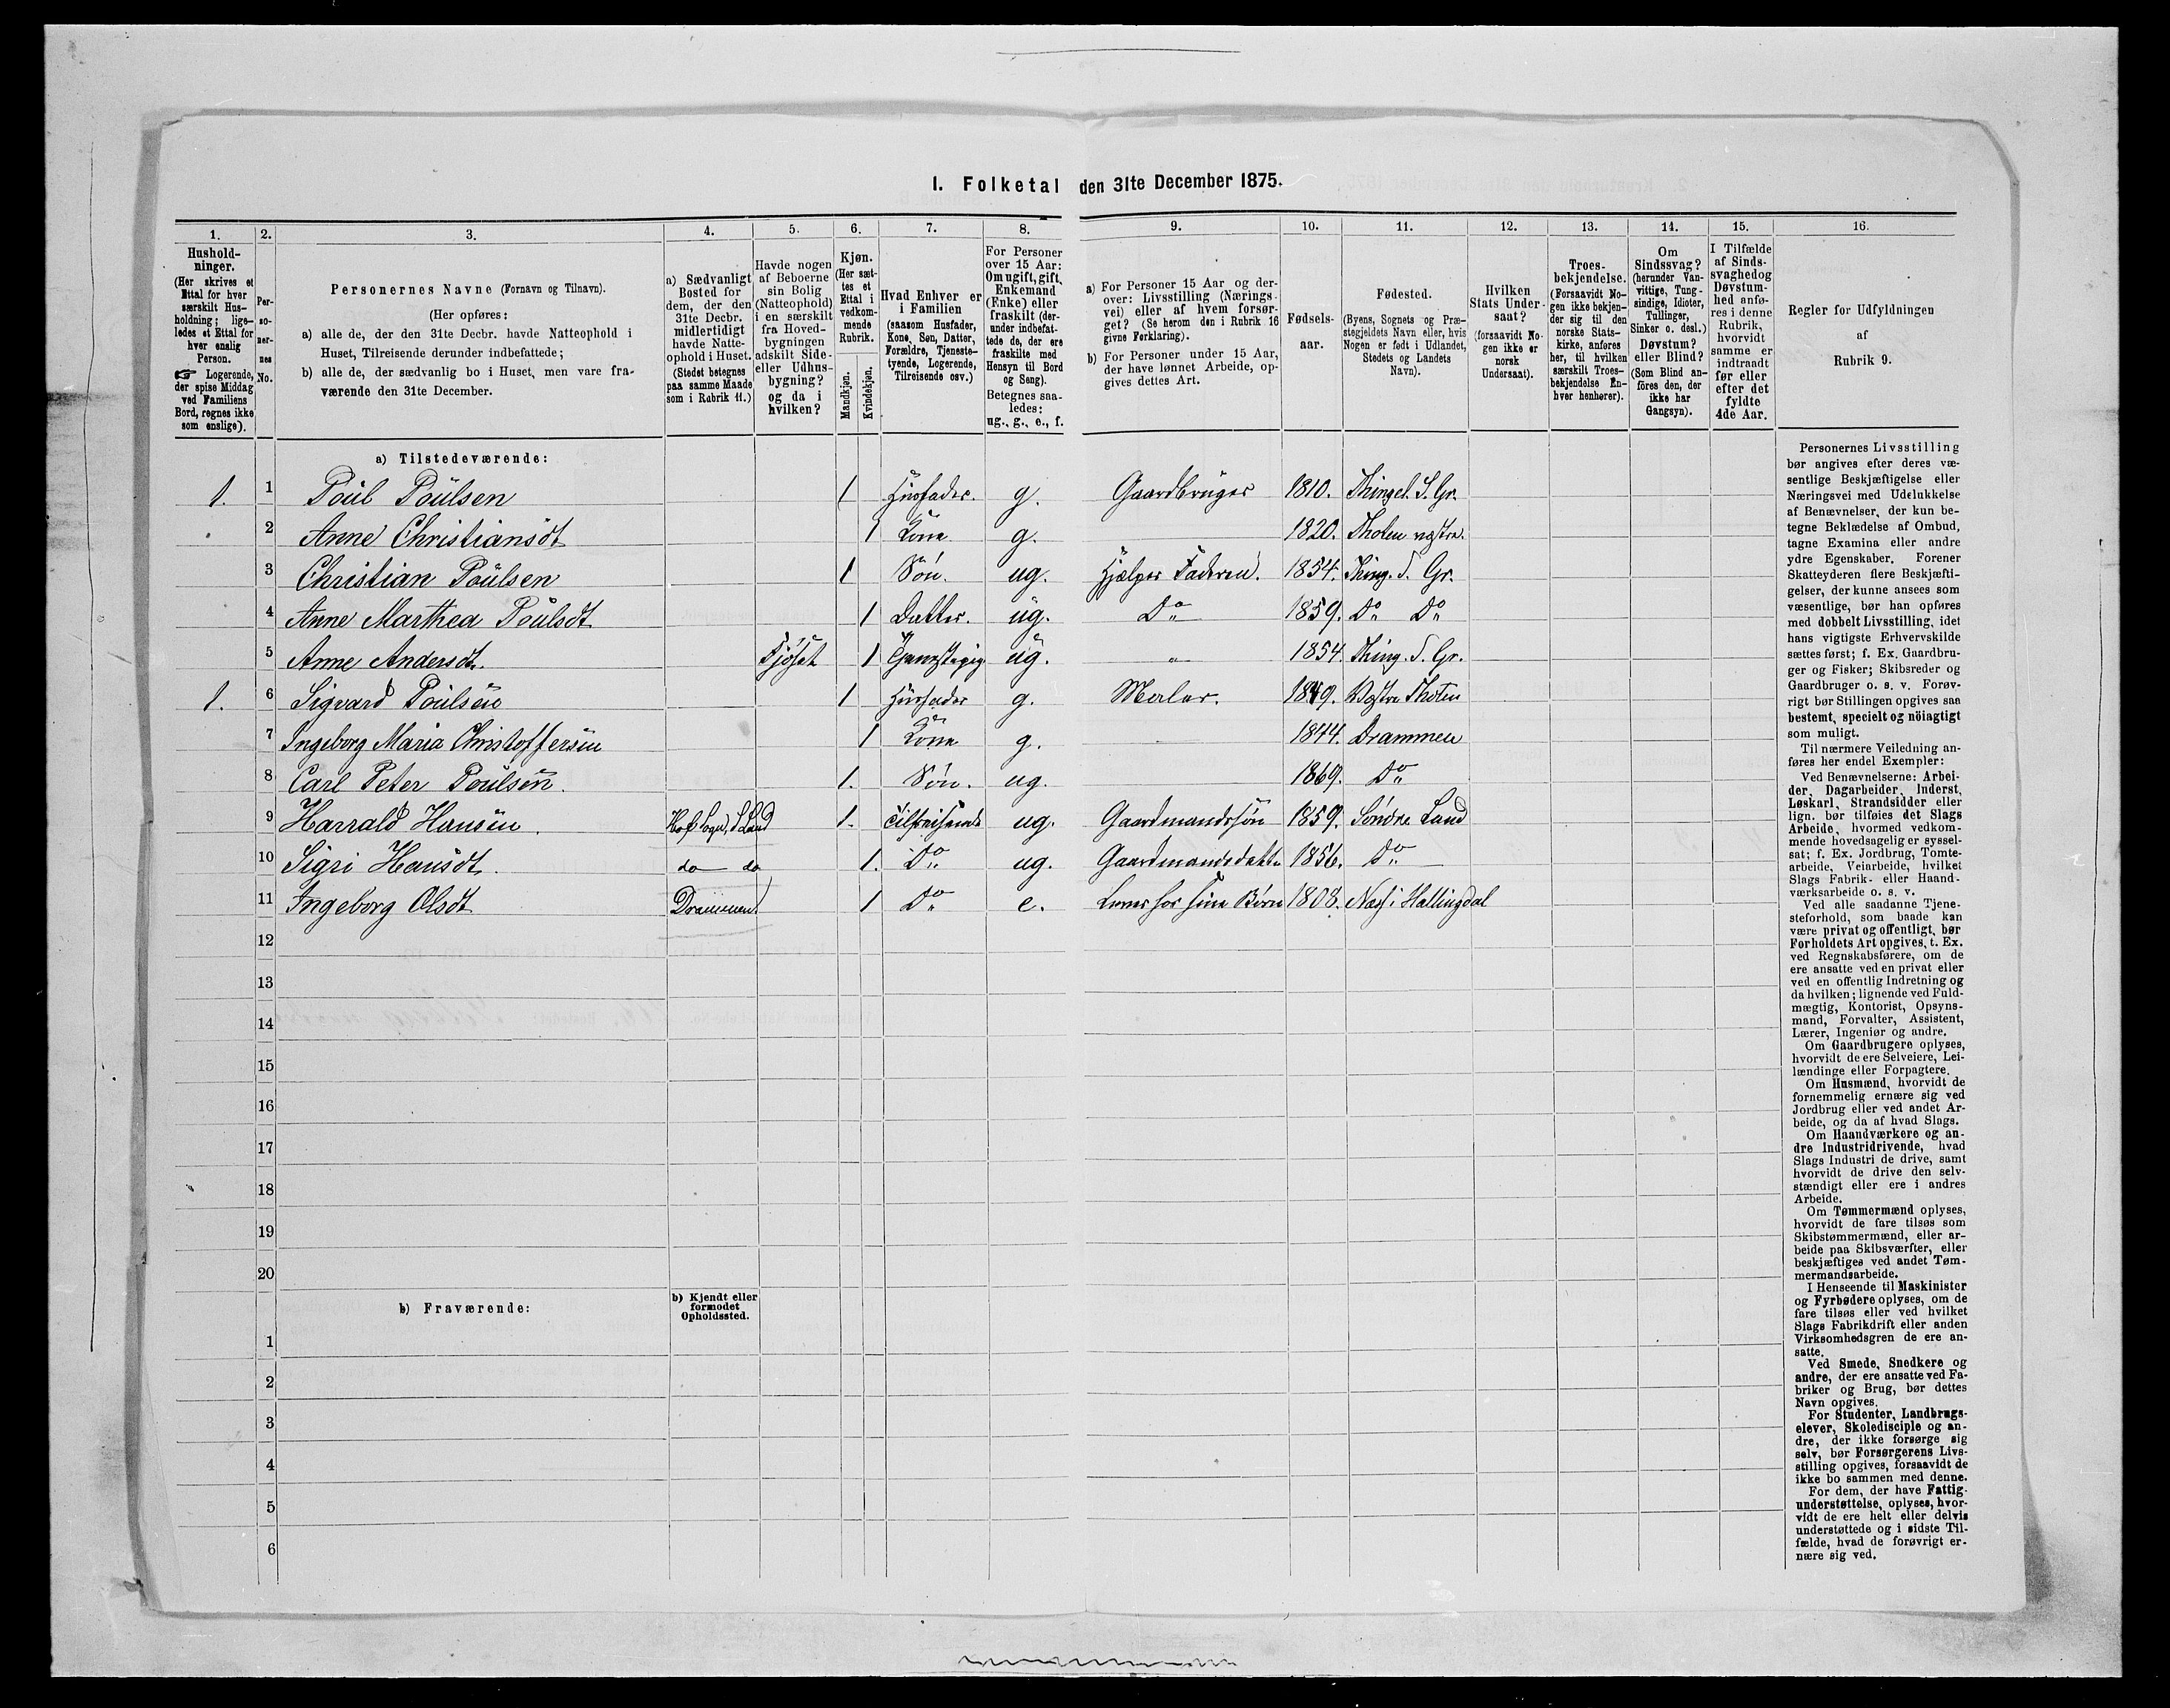 I. Folketal den 31te December 1875.
1. 2. 3. 4. 5. 6. 7. 8. 9. 10. 11. 12. 13. 14. 15. 16.
Hushold-
ninger.
(Her skrives et
Ettal for hver
særskilt Hus-
holdning; lige-
ledes et Ettal for
hver enslig
Person.
☞ Logerende,
der spise Middag
ved Familiens
Bord, regnes ikke
som enslige).
Per-
so-
ner-
nes
No.
Personernes Navne (Fornavn og Tilnavn).
(Her opføres:
a) alle de, der den 31te Decbr. havde Natteophold i
Huset, Tilreisende derunder indbefattede;
b) alle de, der sædvanlig bo i Huset, men vare fra-
værende den 31te December.
a) Sædvanligt
Bosted for
dem, der den
31te Decbr.
midlertidigt
havde Natte-
ophold i Huset.
(Stedet betegnes
paa samme Maade
som i Rubrik 11.)
Havde nogen
af Beboerne
sin Bolig
(Natteophold)
i en særskilt
fra Hoved-
bygningen
adskilt Side-
eller Udhus-
bygning?
og da i
hvilken?
Kjøn.
(Her sæt-
tes et
Ettal i
vedkom-
mende
Rubrik.
Mandkjøn.
Kvindekjøn.
Hvad Enhver er
i Familien
(saasom Husfader,
Kone, Søn, Datter,
Forældre, Tjeneste-
tyende, Logerende,
Tilreisende osv.)
For Personer
over 15 Aar:
Om ugift, gift,
Enkemand
(Enke) eller
fraskilt (der-
under indbefat-
tede de, der ere
fraskilte med
Hensyn til Bord
og Seng).
Betegnes saa-
ledes:
ug., g., e., f.
a) For Personer 15 Aar og der-
over: Livsstilling (Nærings-
vei) eller af hvem forsør-
get? (Se herom den i Rubrik 16
givne Forklaring).
b) For Personer under 15 Aar,
der have lønnet Arbeide, op-
gives dettes Art.
Fødsels-
aar.
Fødested.
(Byens, Sognets og Præ-
stegjeldets Navn eller, hvis
Nogen er født i Udlandet,
Stedets og Landets
Navn).
Hvilken
Stats Under-
saat?
(forsaavidt No-
gen ikke er
norsk
Undersaat).
Troes-
bekjendelse.
(Forsaavidt No-
gen ikke bekjen-
der sig til den
norske Stats-
kirke, anføres
her, til hvilken
særskilt Troes-
bekjendelse En-
hver henhører).
Om
Sindssvag?
(herunder Van-
vittige, Tung-
sindige, Idioter,
Tullinger,
Sinker o. desl.)
Døvstum?
eller Blind?
(Som Blind an-
føres den, der
ikke har
Gangsyn).
I Tilfælde
af Sinds-
svaghed og
Døvstum-
hed anfø-
res i denne
Rubrik,
hvorvidt
samme er
indtraadt
før eller
efter det
fyldte
4de Aar.
Regler for Udfyldningen
af
Rubrik 9.
a) Tilstedeværende:
1. 1 Poul Poulsen 1 Husfader. g. Gaardbruger 1810. Thingel. S. Gr.
2 Anne Christiansdt 1 Kone g. 1820. Thoten vestre.
3 Christian Poulsen 1 Søn. ug. Hjælper Faderen. 1854. Thing. S. Gr.
4 Anne Marthea Poulsdt 1 Datter. ug. Do 1859. Do Do
5 Anne Andersdt. Fjøset 1 ug. " 1854. Thing. S. Gr.
1. 6 Sigvard Poulsen 1 Husfader g. Maler. 1849. Vestre Thoten
7 Ingeborg Maria Christoffersen 1 Kone g. 1844. Drammen
8 Carl Peter Poulsen. 1. Søn. ug. 1869. Do
9 Harrald Hansen. Hof Sogn, S Land 1. Tilreisende ug. Gaardmandssøn 1859. Søndre Land
10 Sigri Hansdt. do do 1. Do ug. Gaardmandsdatt. 1856. Do
11 Ingeborg Olsdt Drammen 1 Do e. Lever hos sine Børn 1808. Næs i Hallingdal
12
13
14
15
16
17
18
19
20
b) Fraværende:
b) Kjendt eller
formodet
Opholdssted.
1
2
3
4
5
6
Personernes Livsstilling
bør angives efter deres væ-
sentlige Beskjæftigelse eller
Næringsvei med Udelukkelse
af Benævnelser, der kun be-
tegne Beklædelse af Ombud,
tagne Examina eller andre
ydre Egenskaber. Forener
Skatteyderen flere Beskjæfti-
gelser, der kunne ansees som
væsentlige, bør han opføres
med dobbelt Livsstilling, idet
hans vigtigste Erhvervskilde
sættes først; f. Ex. Gaardbru-
ger og Fisker; Skibsreder og
Gaardbruger o. s. v. Forøv-
rigt bør Stillingen opgives saa
bestemt, specielt og nöiagtigt
som muligt.
Til nærmere Veiledning an-
føres her endel Exempler:
Ved Benævnelserne: Arbei-
der, Dagarbeider, Inderst,
Løskarl, Strandsidder eller
lign. bør tilføies det Slags
Arbeide, hvormed vedkom-
mende hovedsagelig er syssel-
sat; f. Ex. Jordbrug, Tomte-
arbeide, Veiarbeide, hvilket
Slags Fabrik- eller Haand-
værksarbeide o. s. v.
Ved alle saadanne Tjene-
steforhold, som baade kan
være privat og offentligt, bør
Forholdets Art opgives, t. Ex.
ved Regnskabsførere, om de
ere ansatte ved en privat eller
ved en offentlig Indretning og
da hvilken; lignende ved Fuld-
mægtig, Kontorist, Opsyns-
mand, Forvalter, Assistent,
Lærer, Ingeniør og andre.
Om Gaardbrugere oplyses,
hvorvidt de ere Selveiere, Lei-
lændinge eller Forpagtere.
Om Husmænd, hvorvidt de
fornemmelig ernære sig ved
Jordbrug eller ved andet Ar-
beide, og da af hvad Slags.
Om Haandværkere og an-
dre Industridrivende, hvad
Slags Industri de drive, samt
hvorvidt de drive den selv-
stændigt eller ere i andres
Arbeide.
Om Tømmermænd oplyses,
hvorvidt de fare tilsøs som
Skibstømmermænd, eller ar-
beide paa Skibsværfter, eller
beskjæftiges ved andet Tøm-
mermandsarbeide.
I Henseende til Maskinister
og Fyrbødere oplyses, om de
fare tilsøs eller ved hvilket
Slags Fabrikdrift eller anden
Virksomhedsgren de ere an-
satte.
Ved Smede, Snedkere og
andre, der ere ansatte ved Fa-
briker og Brug, bør dettes
Navn opgives.
For Studenter, Landbrugs-
elever, Skoledisciple og an-
dre, der ikke forsørge sig
selv, bør Forsørgerens Livs-
stilling opgives, forsaavidt de
ikke bo sammen med denne.
For dem, der have Fattig-
understøttelse, oplyses, hvor-
vidt de ere helt eller delvis
understøttede og i sidste Til-
fælde, hvad de forøvrigt er-
nære sig ved.